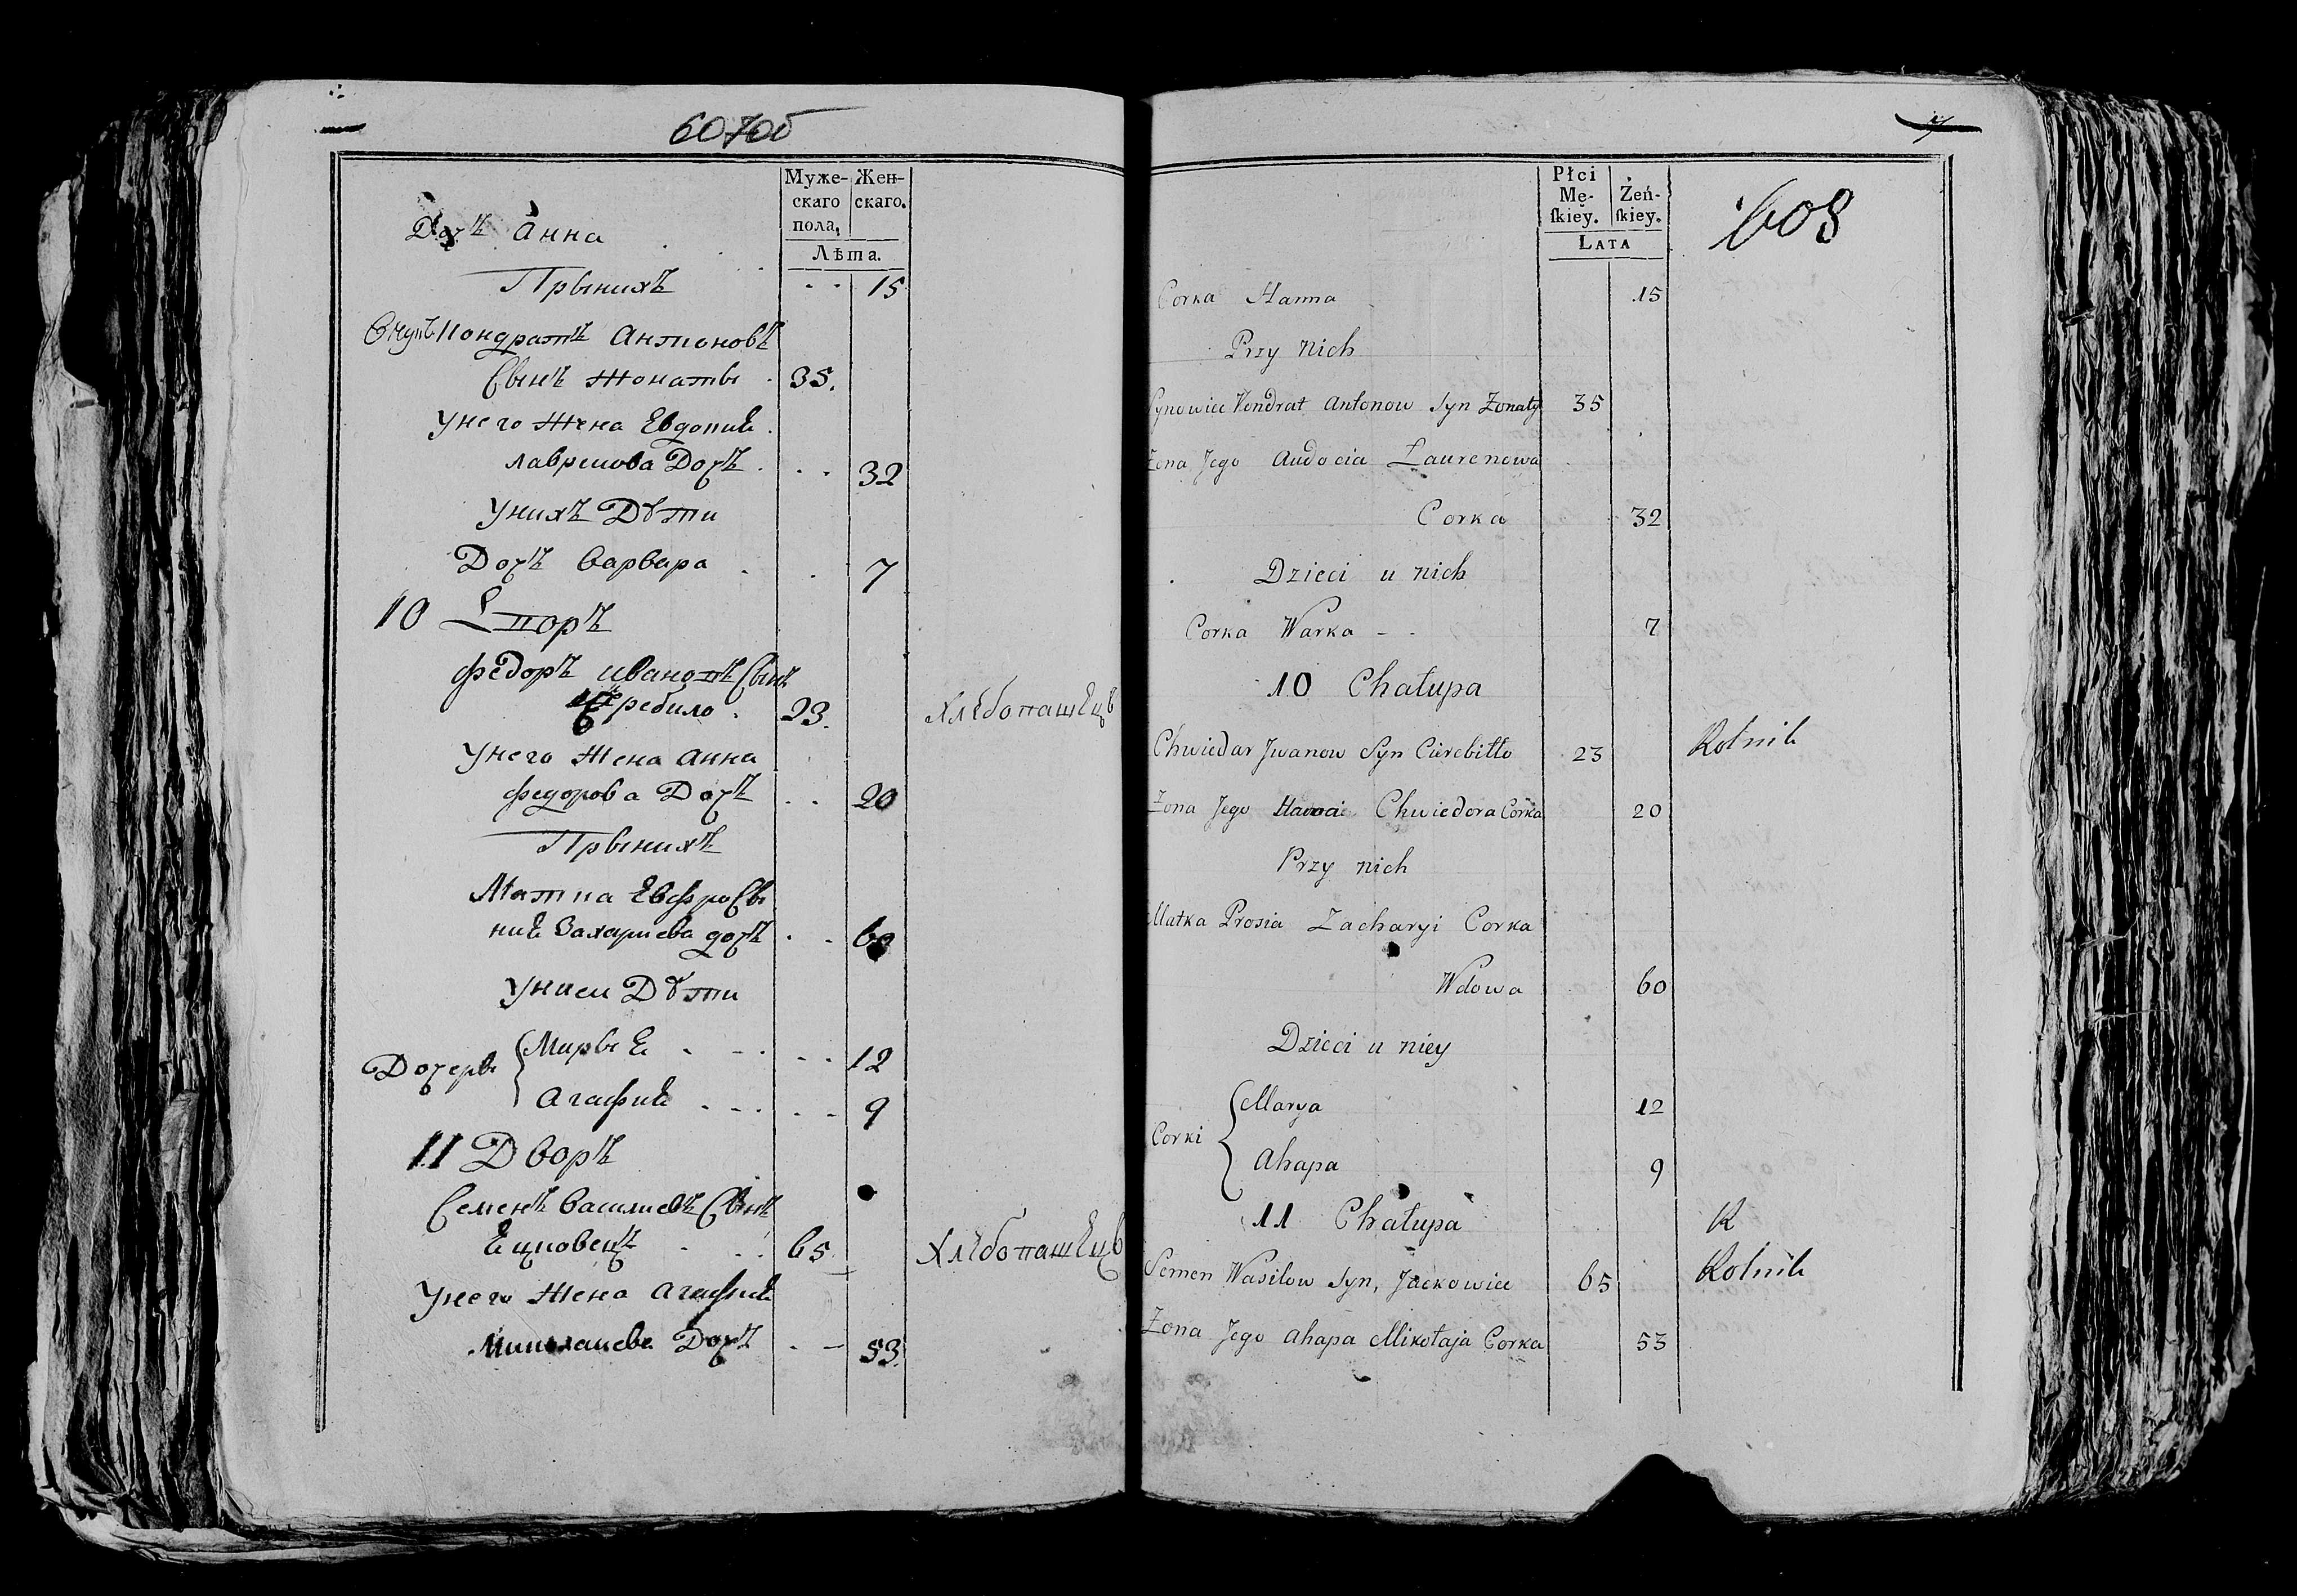 607об
Муже-
скаго
пола.
Жен-
скаго.
Лѣта.
Дочь Анна
Прынихъ
15
Внукъ Кондратъ Антоновъ
Сынъ Жонаты
35.
Унего Жена Евдокиѣ
лавренова Дочь
32
Унихъ Дѣти
Дочь Варвара
7
10 Дворъ
Федоръ Ивановъ Сынъ
Церебило
23.
Хлѣбопашецъ
Унего Жена Анна
Федорова Дочь
20
Прынихъ
Матка Евфросы
ниѣ Захариева дочь
60
Униеи Дѣти
Дочеры
Марыѣ
12
Агафиѣ
9
11 Дворъ
Семенъ Василиевъ Сынъ
Ецковецъ
65.
Хлѣбопашецъ
Унего Жена Агафиѣ
Миколаиева Дочь
53.
Płci
Mę-
skiey.
Żeń-
skiey.
LATA
608
Corka Hanna
15
Przy nich
Synowiec Kondrat Antonow Syn Żonaty
35
Żona Jego Audocia Laurenowa
Corka
32
Dzieci u nich
Corka Warka
7
10 Chałupa
Chwiedar Jwanow Syn Cierebiłło
23
Rolnik
Żona Jego Hanna Chwiedora Corka
20
Przy nich
Matka Prosia Zacharyi Corka
Wdowa
60
Dzieci u niey
Corki
Marya
12
Ahapa
9
11 Chałupa
R
Semen Wasilow Syn, Jackowiec
65
Rolnik
Żona Jego Ahapa Mikołaja Corka
53